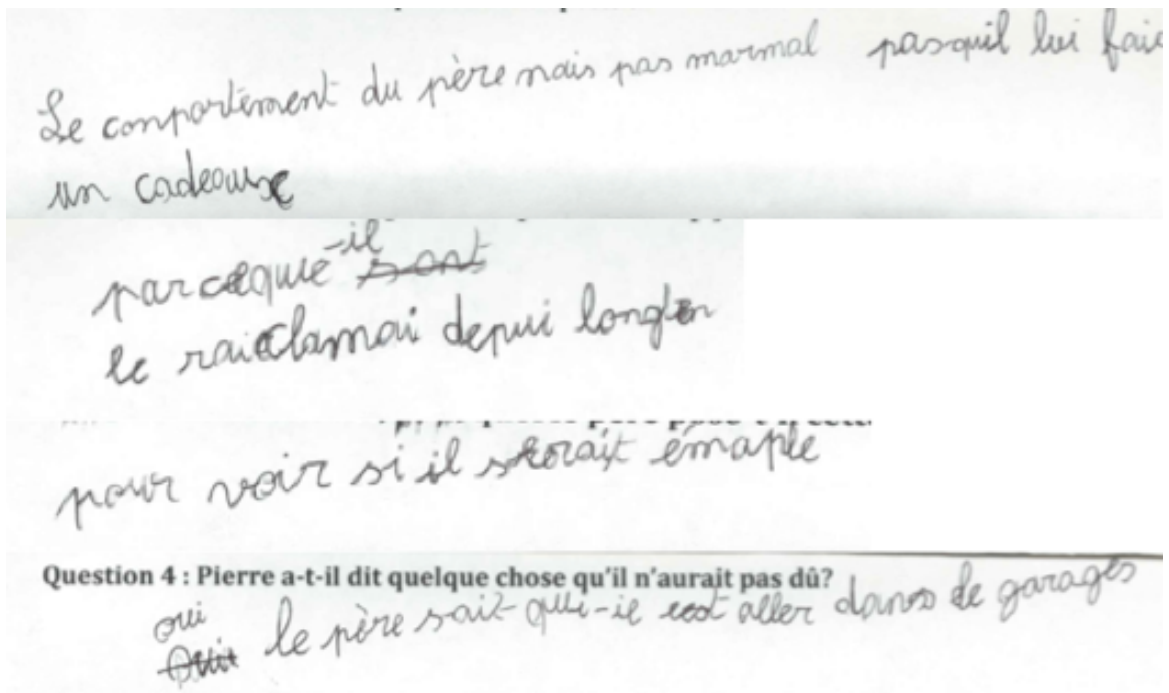 Le comportement du père nais pas marmal pasquil lui faic
un cadeause
parceque -il sont
le raiclamai depui longten
pour voir si il sorait émaple
Question 4 : Pierre a-t-il dit quelque chose qu'il n'aurait pas dû?
oui le père sait-qui-il est aller dans le garages
Oui